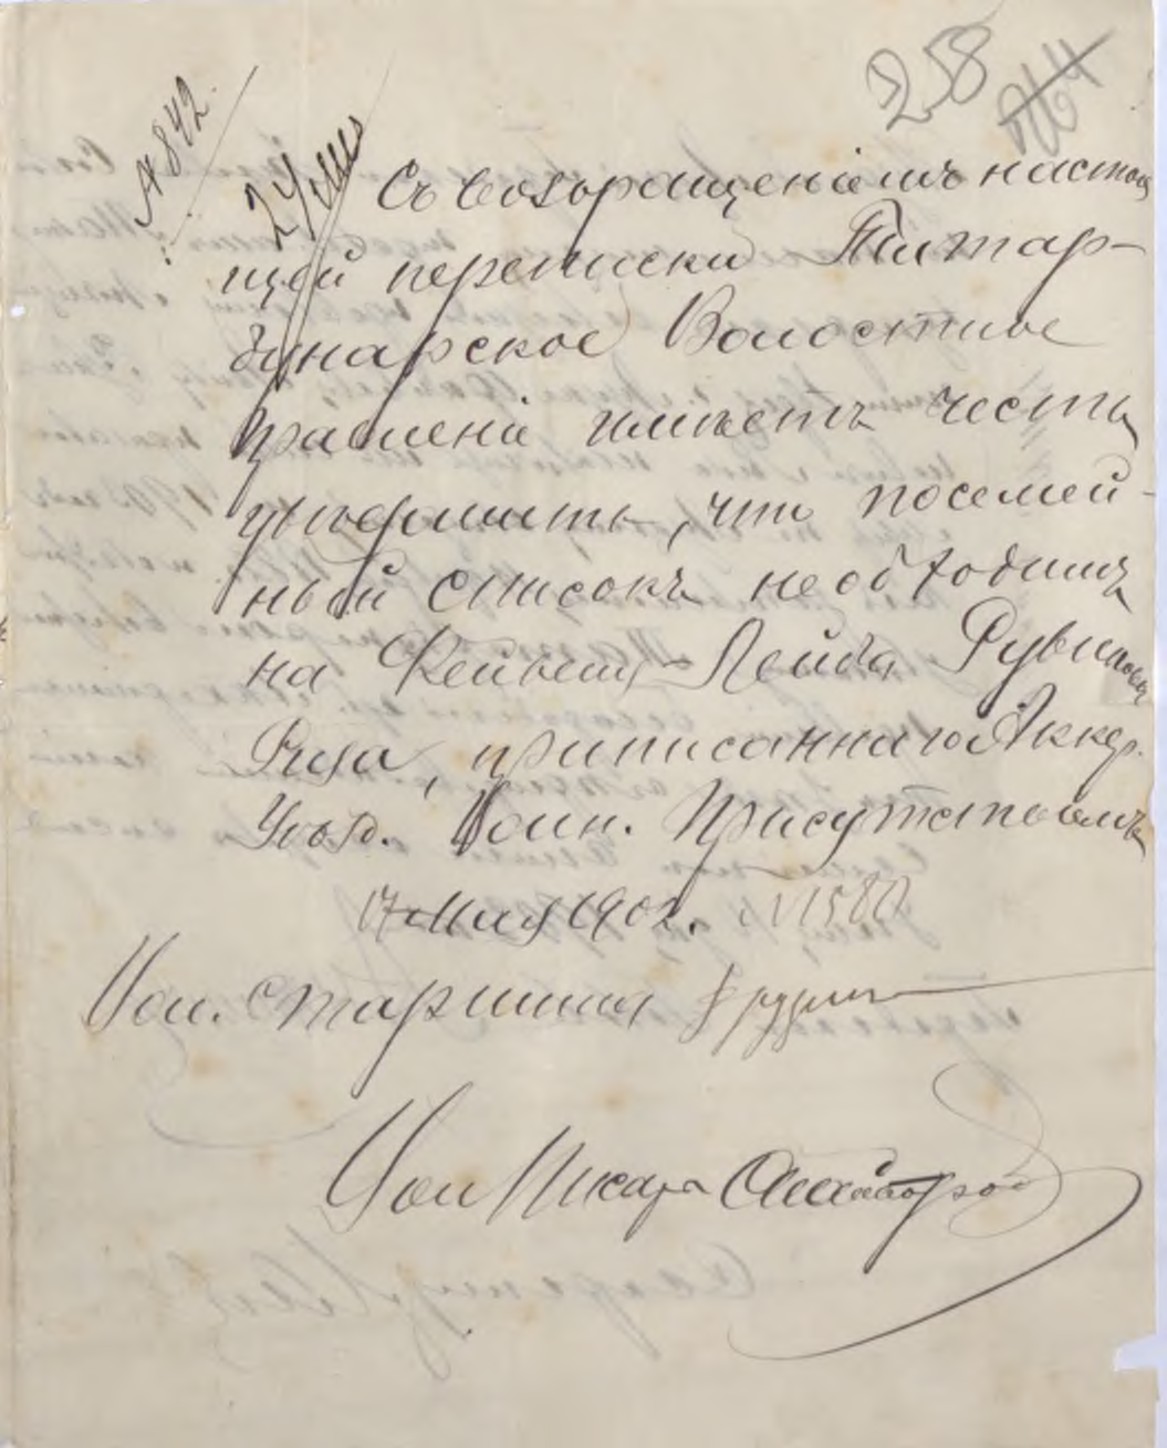 258
264
№ 842.
24 мая
Съ возвращеніемъ настоя
щей переписки Татар-
бунарское Волостное
Правленіе имѣетъ честь
увѣдомить, что посемей-
ный списокъ необходимъ
на Лейба Рувинов
Риза, приписаннаго Аккер.
Уѣзд. Воин. Присутствіемъ
17 Мая 1902. № 1580
Вол. Старшина
Вол Писарь